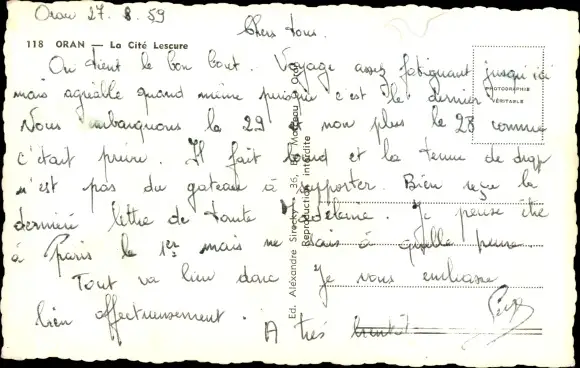 Oran 27.8.59
Chers tous.
118 ORAN — La Cité Lescure
On tient le bon bout. Voyage assez fatiguant jusqu'ici
mais agréable quand même puisque c'est le dernier.
Nous embarquons le 29 et non plus le 28 comme
c'était prévu. Il fait lourd et la tenue de drap
n'est pas du gateau à supporter. Bien reçu la
dernière lettre de tante Madeleine. Je pense être
à Paris le 1er mais ne sais à quelle heure.
Tout va bien donc Je vous embrasse
bien affectueusement.
A très bientôt
PHOTOGRAPHIE
VÉRITABLE
Ed. Alexandre Sirecky - 36, Bd Marceau - Oran
Reproduction interdite